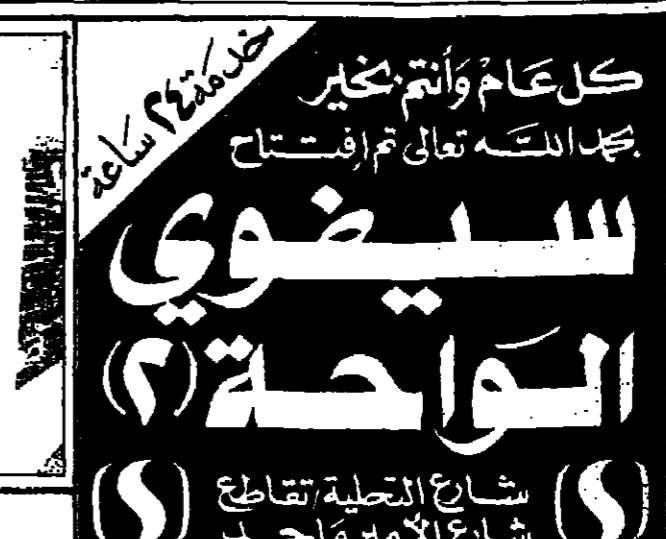 خدمة ٢٤ ساعة
كل عَامْ وَأَنتم بخَير
بحمد اللـَّـه تعالى تم افتـتاح
سـيفوي
الـوَاحـة (٢)
بشـارع التحلية/تقاطع
شـارع الأمير مَاجـد